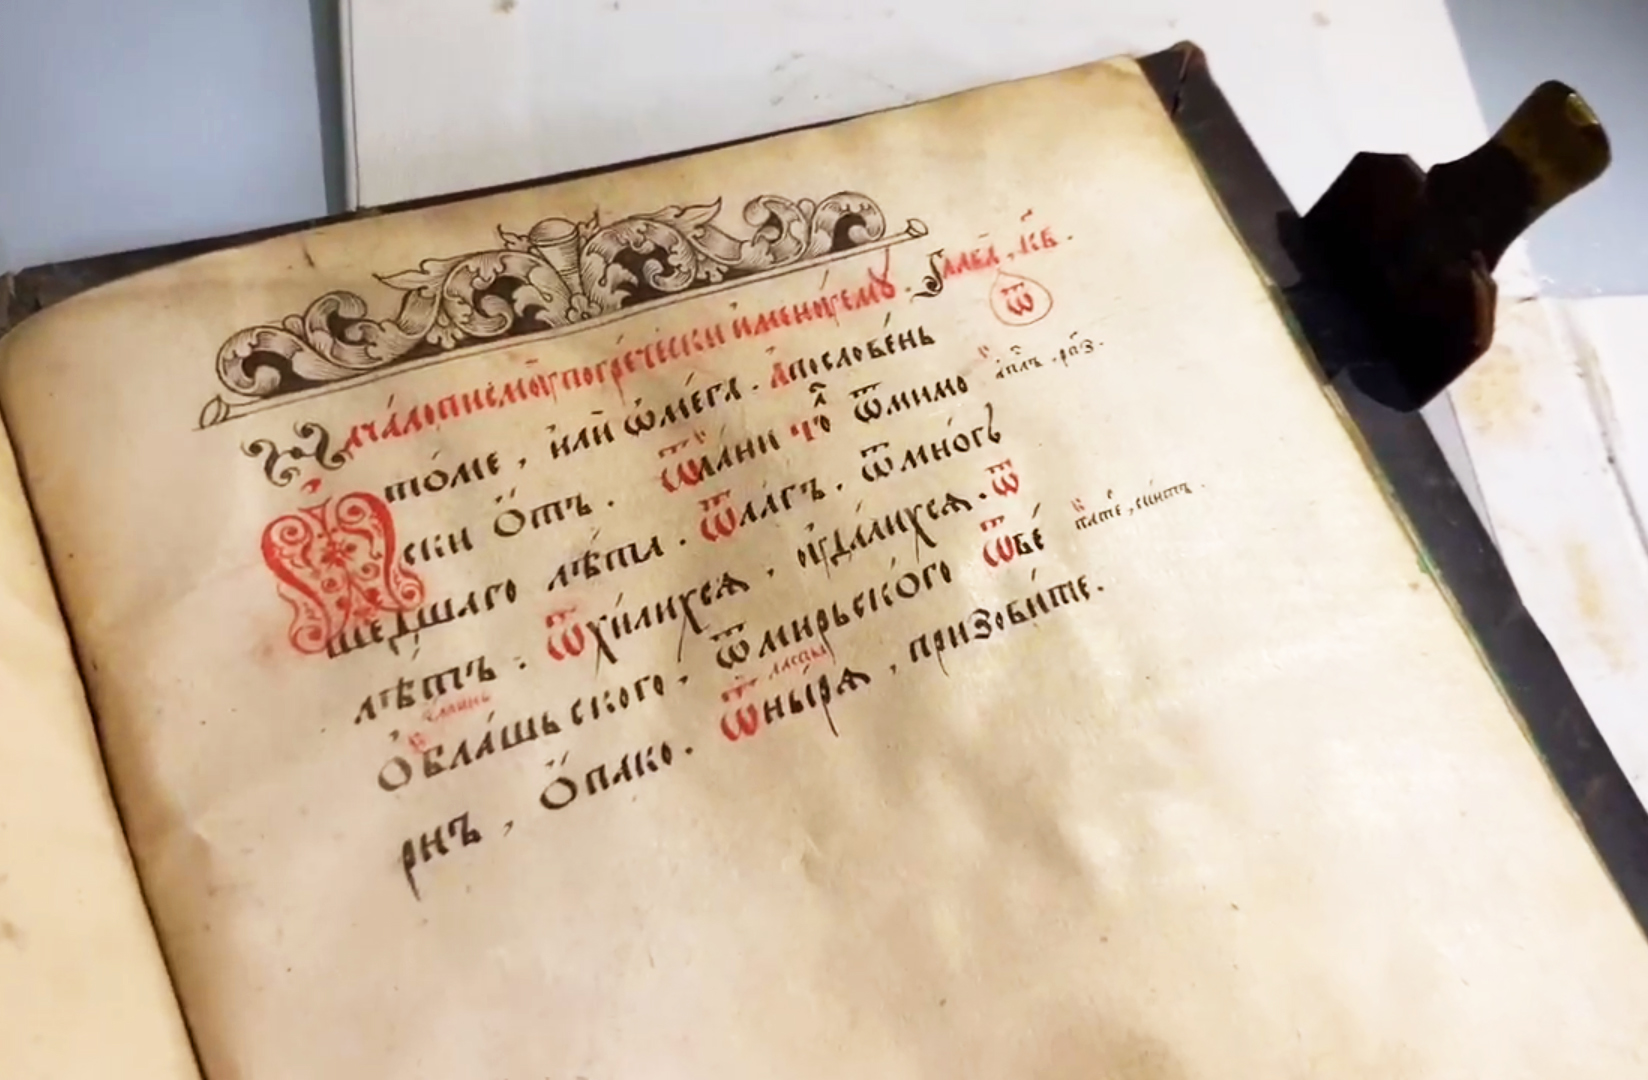 Нача́ло писмоу погре́чески и҆менꙋ́емꙋ . Глава̀ , к҃в .
ѿ
то́ме , и҆лѝ ѡ҆ме́га . А҆пословéнь
ски О҆́тъ . Ѿла́ни ѿмимо
шедшаго лѣ́та . Ѿлагъ . ѿмно́гъ
лѣ́тъ . Ѿхи́лихсѧ . оу҆да́лихсѧ . ѿ
О҆бла́шьского . ѿмирьско́го Ѿве́
рнъ , О҆́пако . Ѿны́рѧ , призови́те .